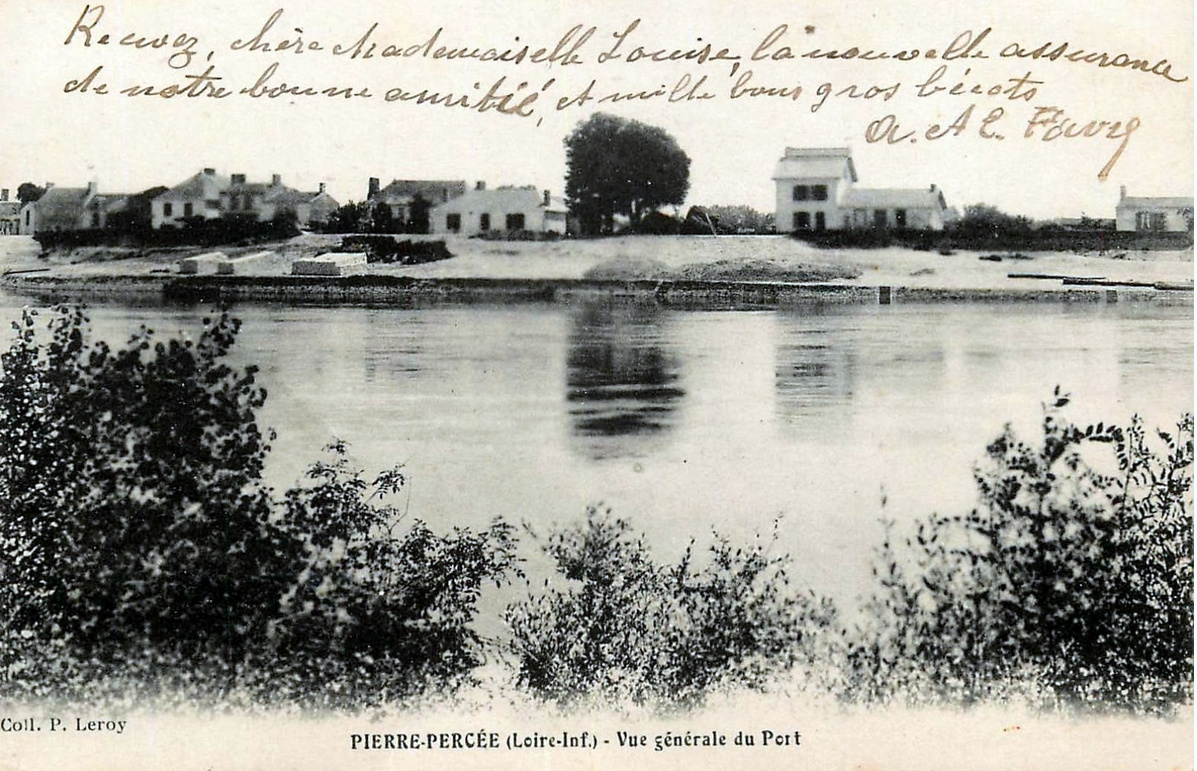 Recevez, chère Mademoiselle Louise, la nouvelle assurance
de notre bonne amitié, et mille bons gros bécots
A. et L. Favry
Coll. P. Leroy
PIERRE-PERCÉE (Loire-Inf.) - Vue générale du Port